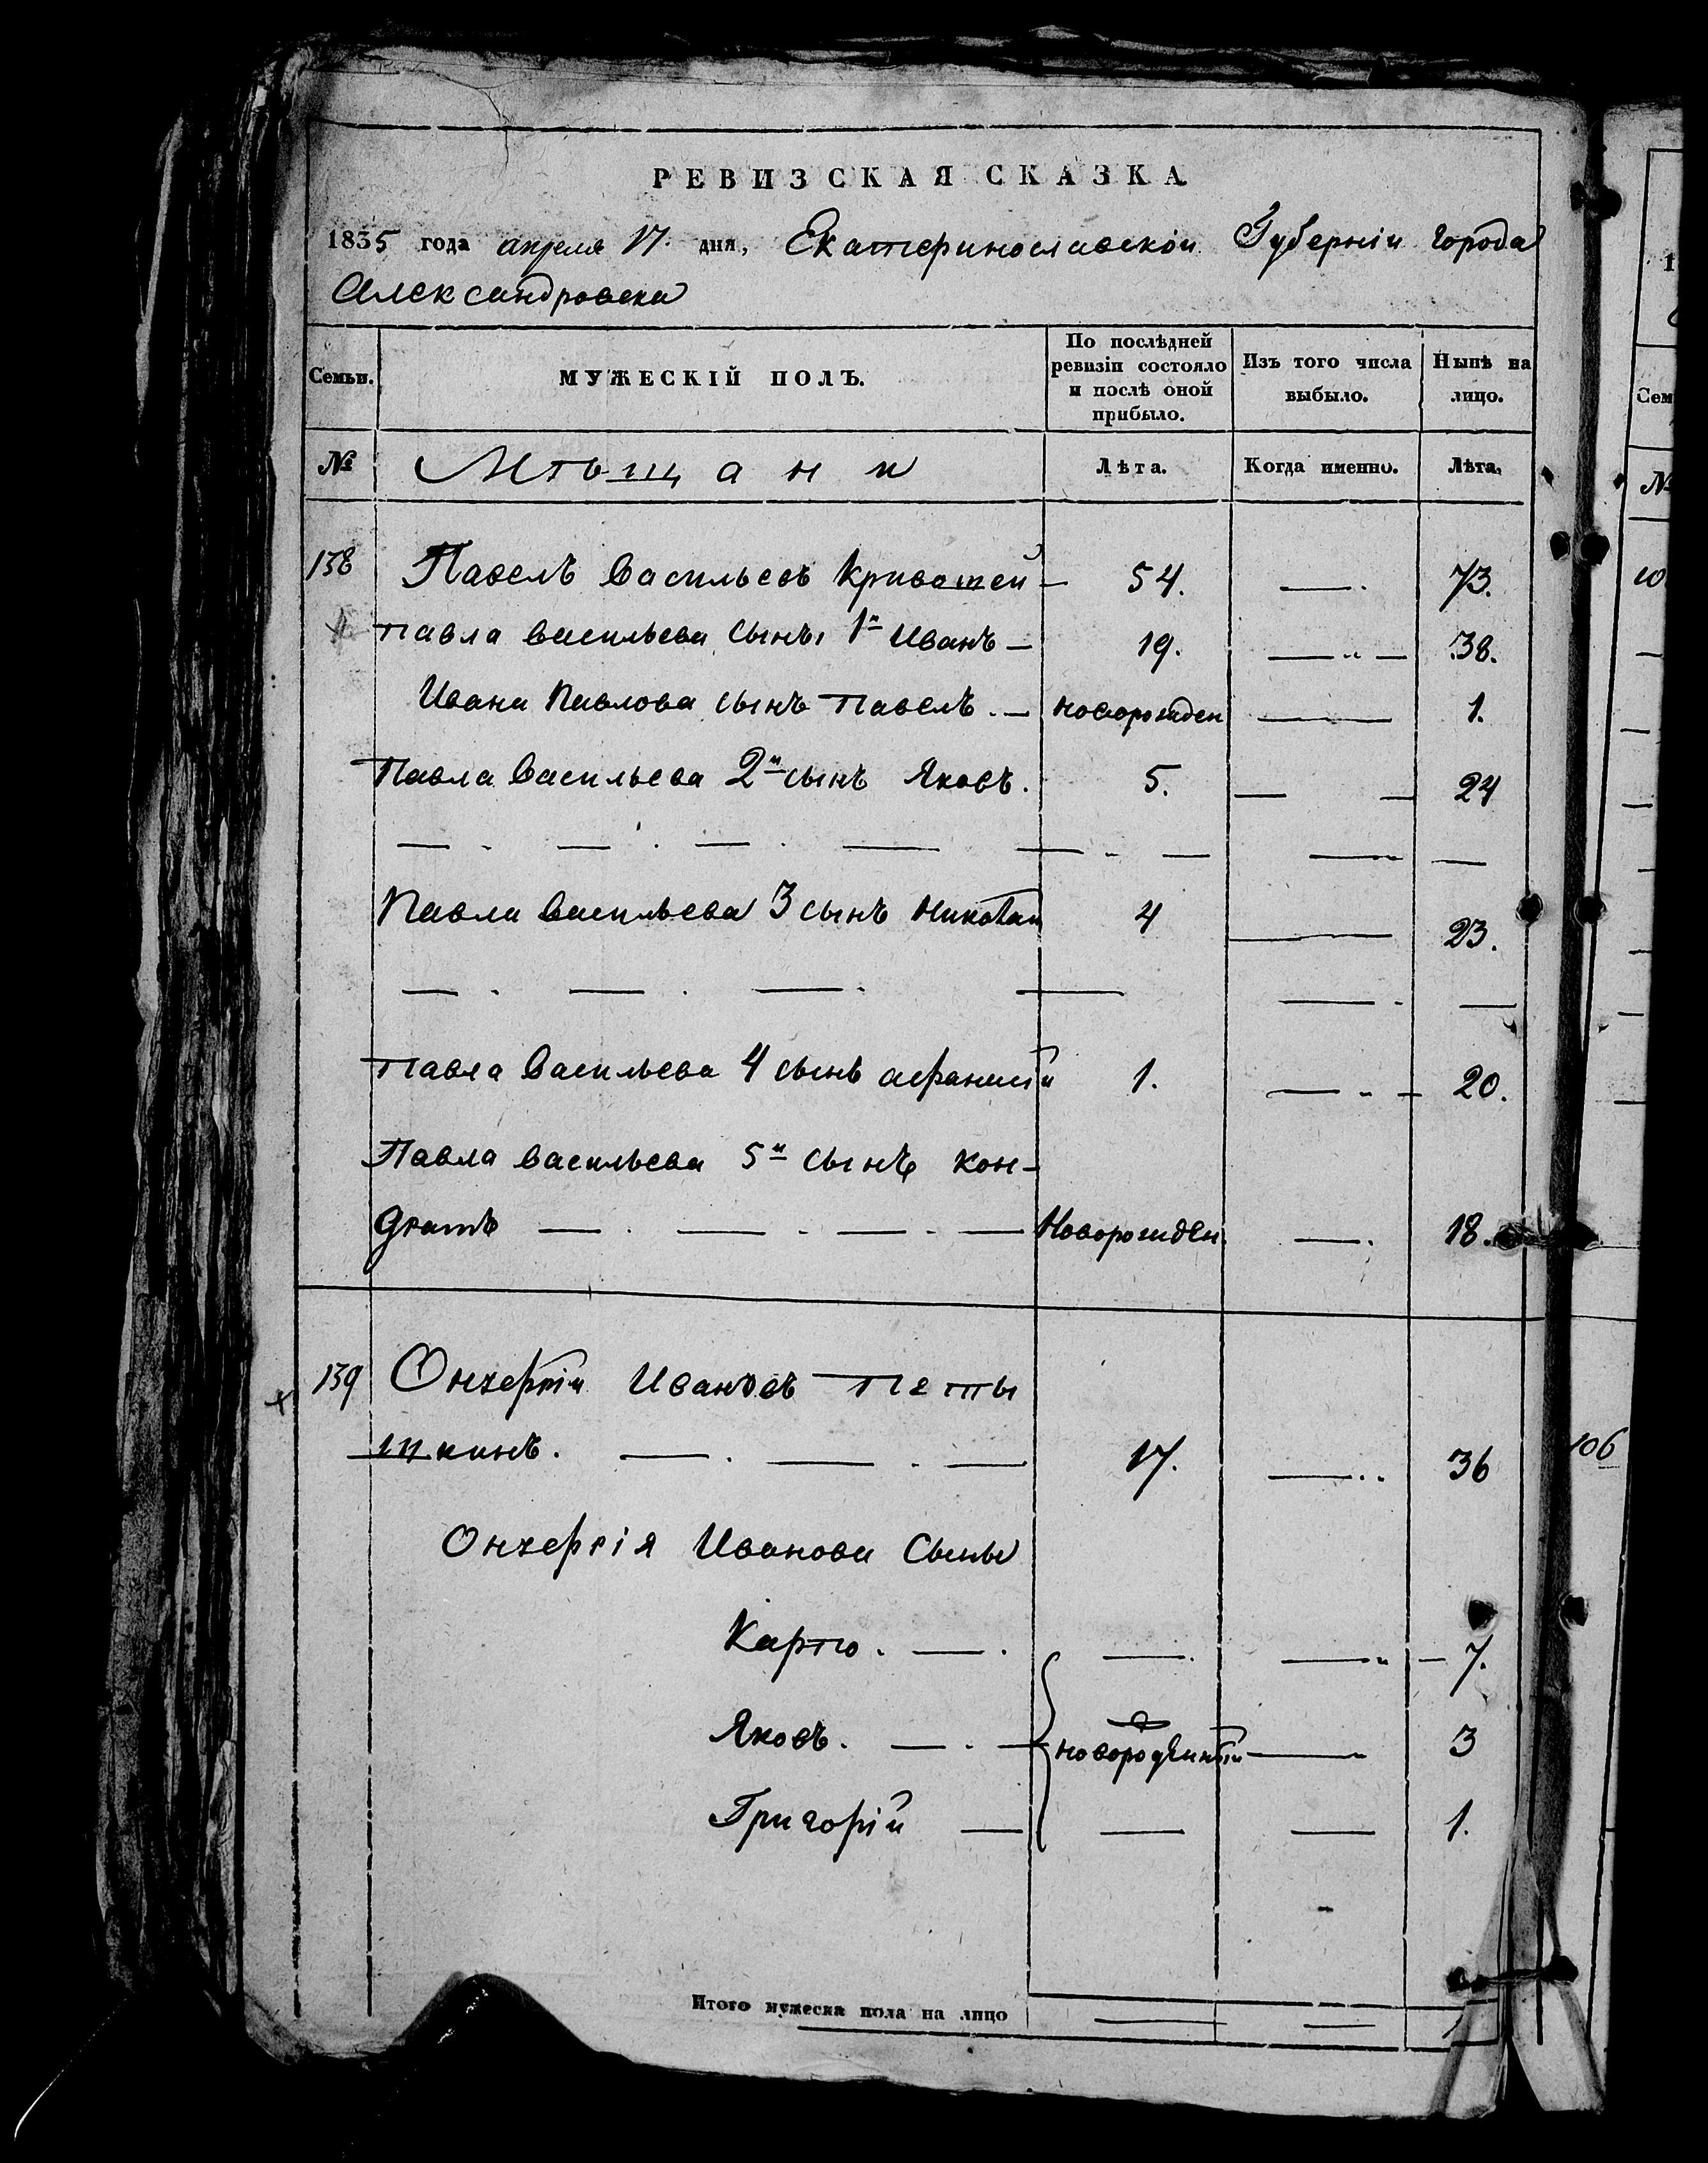 РЕВИЗСКАЯ СКАЗКА
1835 года апреля 17. дня, Екатеринославской Губерніи города
Александровска
Семьи. МУЖЕСКІЙ ПОЛЪ. По послѣдней ревизіи состояло и послѣ оной прибыло. Изъ того числа выбыло. Нынѣ на лицо.
№ Мѣщани Лѣта. Когда именно. Лѣта.
138 Павелъ Васильевъ Кривошей — 54. —. 73.
Павла Васильева сынъ 1й Иванъ — 19. — 38.
Ивана Павлова сынъ Павелъ. — новорожден — 1.
Павла Васильева 2й сынъ Яковъ. 5. — — 24
Павла Васильева 3 сынъ Николай 4 — 23.
Павла Васильева 4 сынъ Афанасій 1. — 20.
Павла Васильева 5й сынъ Кон-
дратъ — . — . — . — Новорожден. —. 18.
139 Иванов Петы
шкинъ. — . — . — 17. — 36
Иванова Сыны
Карпо. — . — . — 7.
Яковъ. — . — — 3
Григорій — — — 1.
106
Итого мужеска пола на лицо